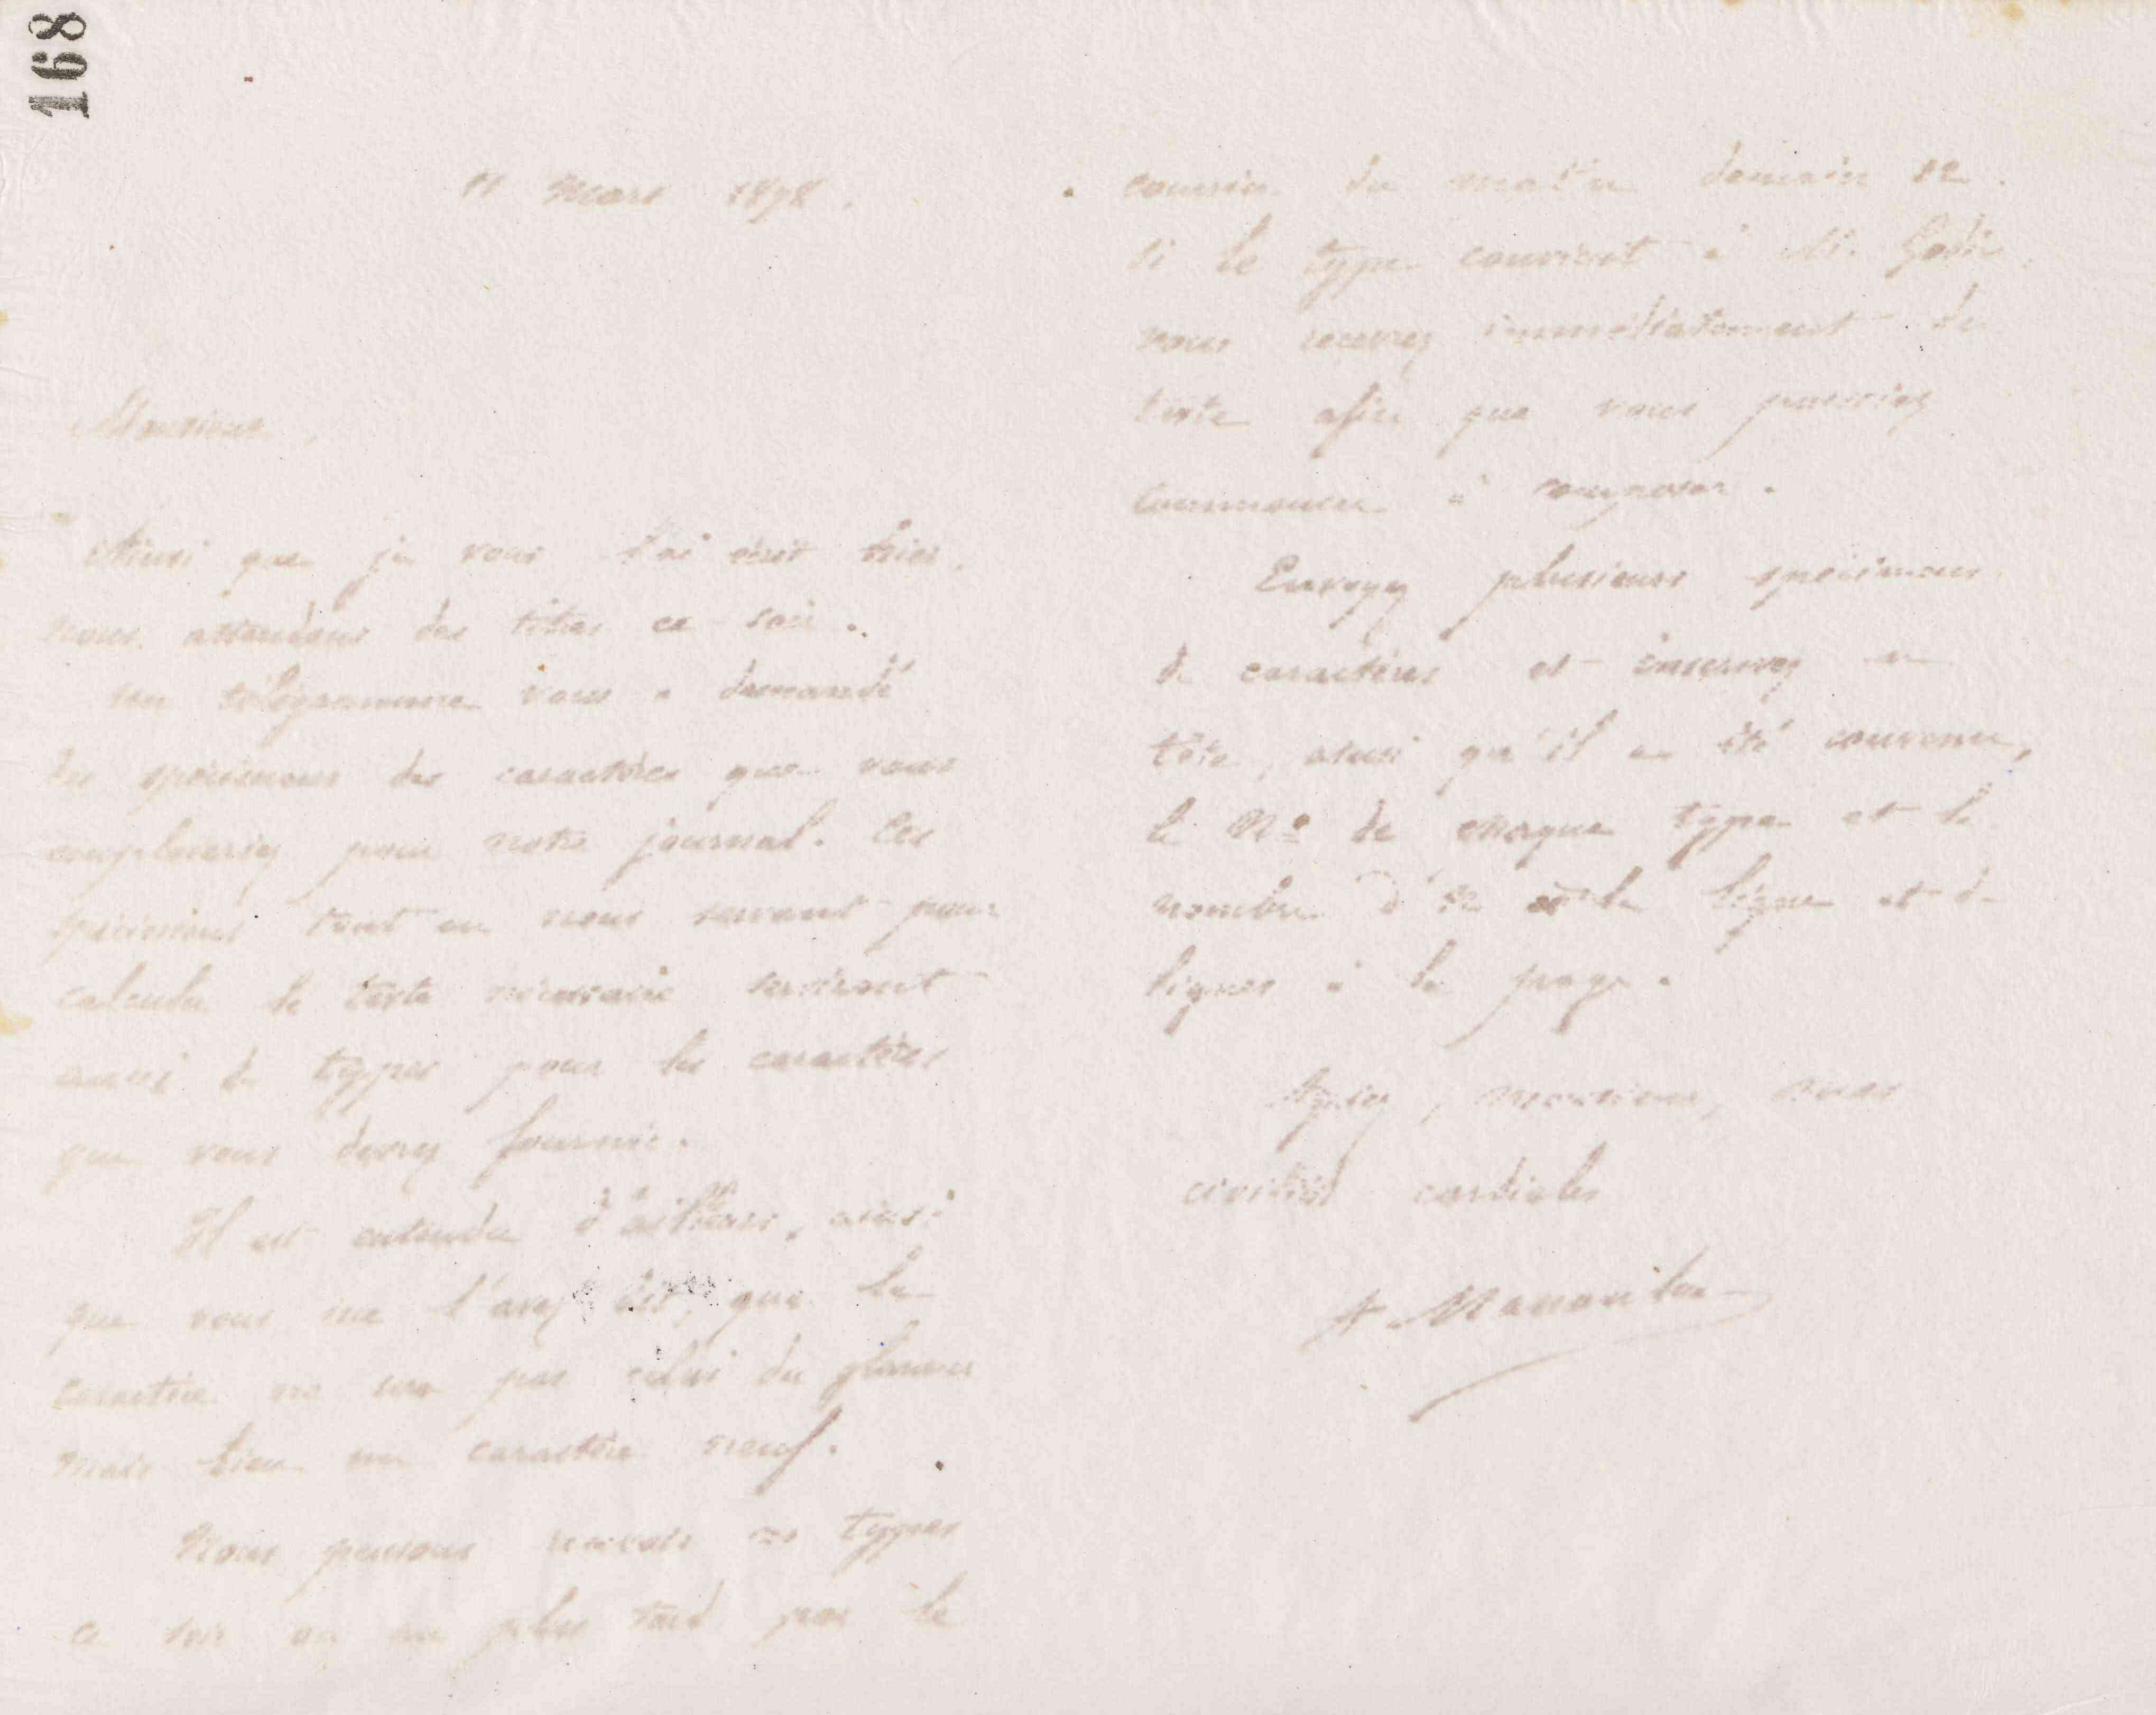 168
11 Mars 1878.
Monsieur,
Ainsi que je vous l'ai écrit hier,
nous attendons des titres ce soir.
Un télégramme vous a demandé
les spécimens des caractères que vous
emploieriez pour notre journal. Ces
spécimens tout en nous servant pour
calculer le texte nécessaire serviront
aussi de types pour les caractères
que vous devrez fournir.
Il est entendu d'ailleurs, ainsi
que vous me l'avez dit, que le
caractère ne sera pas celui du glaneur
mais bien un caractère neuf.
Nous pensons recevoir ces types
ce soir ou au plus tard par le
courrier du matin demain 12.
Si le type convient à M. Godin,
vous recevrez immédiatement du
texte afin que vous puissiez
commencer à composer.
Envoyez plusieurs spécimens
de caractères et inscrivez en
tête, ainsi qu'il a été convenu,
le No de chaque type et le
nombre d'n à la ligne et de
lignes à la page.
Agréez, monsieur, mes
civilités cordiales